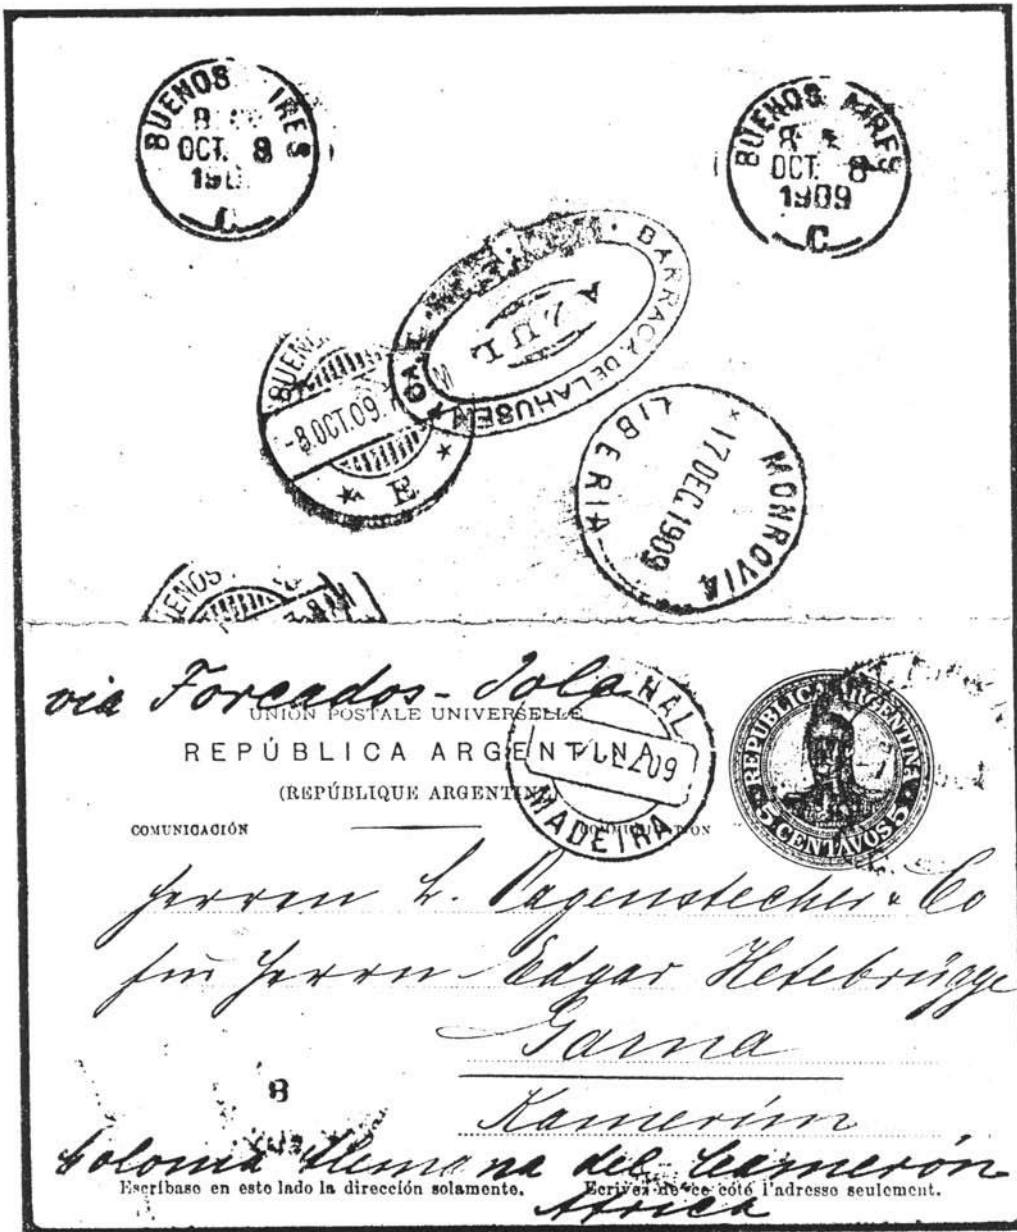 BUENOS IRES
8
OCT. 8
190
BUENOS AIRES
8
OCT. 8
1909
C
BARRACA DE LAHUSEN
AZUL
BUEN
-8.OCT.09.
E
MONROVIA
* 17 DEC. 1909
LIBERIA
ENOS
via Forcados - Jola
UNION POSTALE UNIVERSELLE
REPÚBLICA ARGENTINA
(RÉPUBLIQUE ARGENTINE)
COMUNICACIÓN
HAL
MADEIRA
REPUBLICA ARGENTINA
5 CENTAVOS 5
Herren L. Pagenstecher & Co
für Herrn Edgar Hetebrügge
Garua
Kamerun
8
Colonia Alemana del Camerón
Escríbase en este lado la dirección solamente. Ecrivez de ce coté l'adresse seulement.
Africa